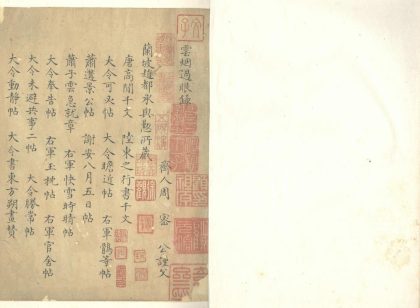 雲烟過眼錄
齊人周 密 公謹父
蘭坡趙都丞與懃所藏
唐高閒千文 陸東之行書千文
大令可必帖 大令瞻近帖 右軍鵠等帖
蕭邃景公帖 謝安八月五日帖
蕭子雲急就章 右軍快雪時晴帖
大令奉告帖 右軍王 帖 右軍官舍帖
大令未避共事二帖 大令勝常帖
大令動靜帖 大令書東方朔畫贊